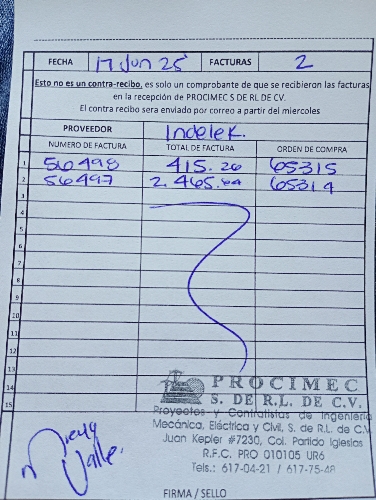 FECHA 17 Jun 25 FACTURAS 2
Esto no es un contra-recibo, es solo un comprobante de que se recibieron las facturas
en la recepción de PROCIMEC S DE RL DE CV.
El contra recibo sera enviado por correo a partir del miercoles
PROVEEDOR Indelek.
NUMERO DE FACTURA TOTAL DE FACTURA ORDEN DE COMPRA
1 56498 415.26 65315
2 56497 2.465.44 65314
3
4
5
6
7
8
9
10
11
12
13
14
15
PROCIMEC
S. DE R.L. DE C.V.
Proyectos y Contratistas de Ingeniería
Mecánica, Eléctrica y Civil, S. de R.L. de C.V.
Juan Kepler #7230, Col. Partido Iglesias
R.F.C. PRO 010105 UR6
Tels.: 617-04-21 / 617-75-48
Valle.
FIRMA / SELLO